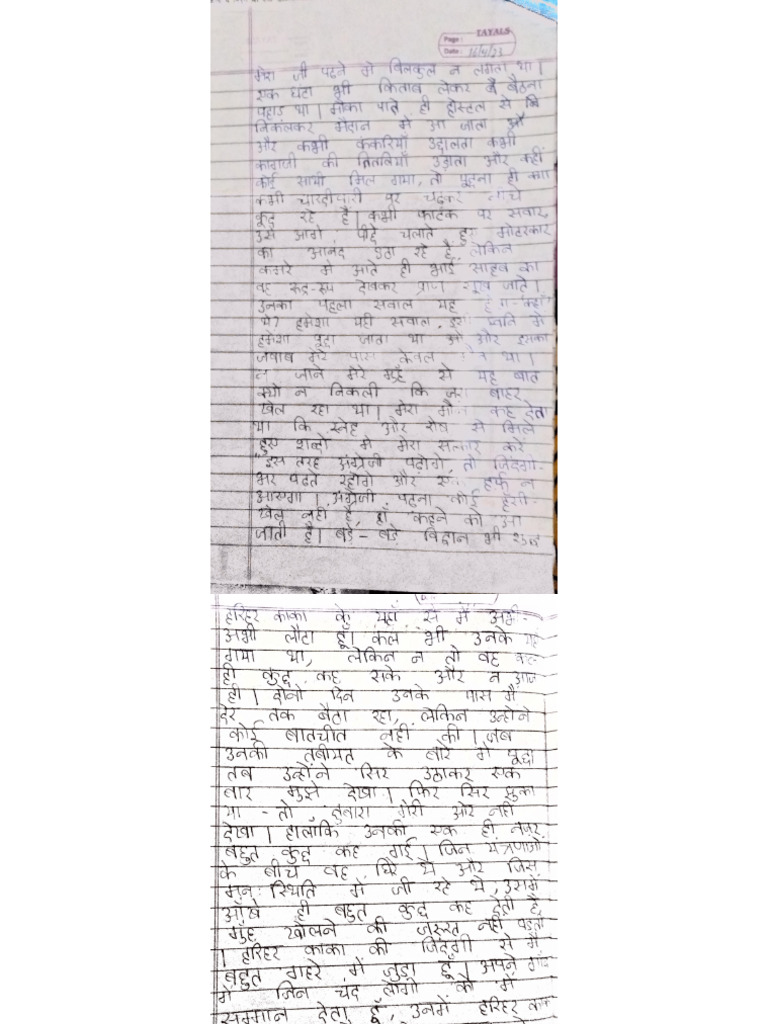 Page: TAYALS
Date: 26/4/23
मेरा जी पढ़ने में बिलकुल न लगता था।
एक घंटा भी किताब लेकर बैठना
पहाड़ था। मौका पाते ही होस्टल से
निकलकर मैदान में आ जाता
और कभी कंकरियाँ उछालता कभी
कागजी की तितलियाँ उड़ाता और कहीं
कोई साथी मिल गया, तो पूछना ही क्या
कभी चारदीवारी पर चढ़कर नीचे
कूद रहे है। कभी फाटक पर सवार,
उसे आगे पीछे चलाते हुए मोटरकार
का आनंद उठा रहे है, लेकिन
कमरे मे आते ही भाई साहब का
वह रूद्र-रूप देखकर प्राण सूख जाते।
उनका पहला सवाल यह
थे? हमेशा यही सवाल, ध्वनि में
हमेशा पूछा जाता था और इसका
जवाब मेरे पास केवल था।
न जाने मेरे मुहँ से यह बात
क्यो न निकली कि जरा बाहर
खेल रहा था। मेरा मौन कह देता
था कि स्नेह और रोष से मिले
हुए शब्दो मे मेरा सत्कार करें
"इस तरह अंग्रेजी पढ़ोगे, तो जिंदगी-
भर पढ़ते रहोगे और हर्फ न
आएगा। अंग्रेजी पढ़ना कोई हँसी
खेल नही है, हाँ कहने को आ
जाती है। बड़े-बड़े विद्वान भी शुद्ध
हरिहर काका के यहाँ से मैं अभी-
अभी लौटा हूँ। कल भी उनके यहाँ
गया था, लेकिन न तो वह कल
ही कुछ कह सके और न आज
ही। दोनो दिन उनके पास मैं
देर तक बैठा रहा, लेकिन उन्होने
कोई बातचीत नही की। जब
उनकी तबीयत के बारे मे पूछा
तब उन्होंने सिर उठाकर एक
बार मुझे देखा। फिर सिर झुका
या - तो दुबारा मेरी ओर नही
देखा। हालाँकि उनकी एक ही नजर
बहुत कुछ कह गई। जिन यंत्रणाओं
के बीच वह घिरे थे और जिस
मनः स्थिति मे जी रहे थे, उसमें
आँखे ही बहुत कुछ कह देती है,
मुँह खोलने की जरूरत नही पड़ती
। हरिहर काका की जिंदगी से मैं
बहुत गहरे में जुड़ा हूँ। अपने गाँव
मे जिन चंद लोगो को मैं
सम्मान देता हूँ, उनमें हरिहर काका